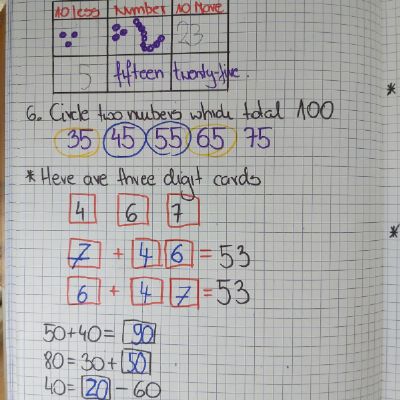 10 less Number 10 More
23
5 fifteen twenty-five.
6. Circle two numbers which total 100
35 45 55 65 75
* Here are three digit cards
4 6 7
7 + 4 6 = 53
6 + 4 7 = 53
50+40= 90
80=30+50
40= 20 - 60
*
*